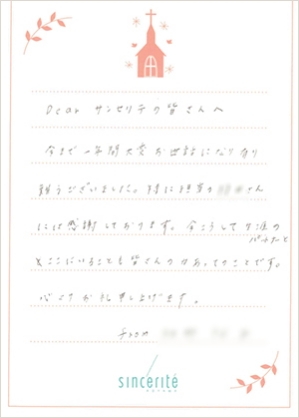 Dear サンセリテの皆さんへ
今まで一年間大変お世話になり有り
難うございました。特に担当の さん
には感謝しております。今こうして生涯の
パートナーと
ここにいることも皆さんの力あってのことです。
心より御礼申し上げます。
from
sincérité